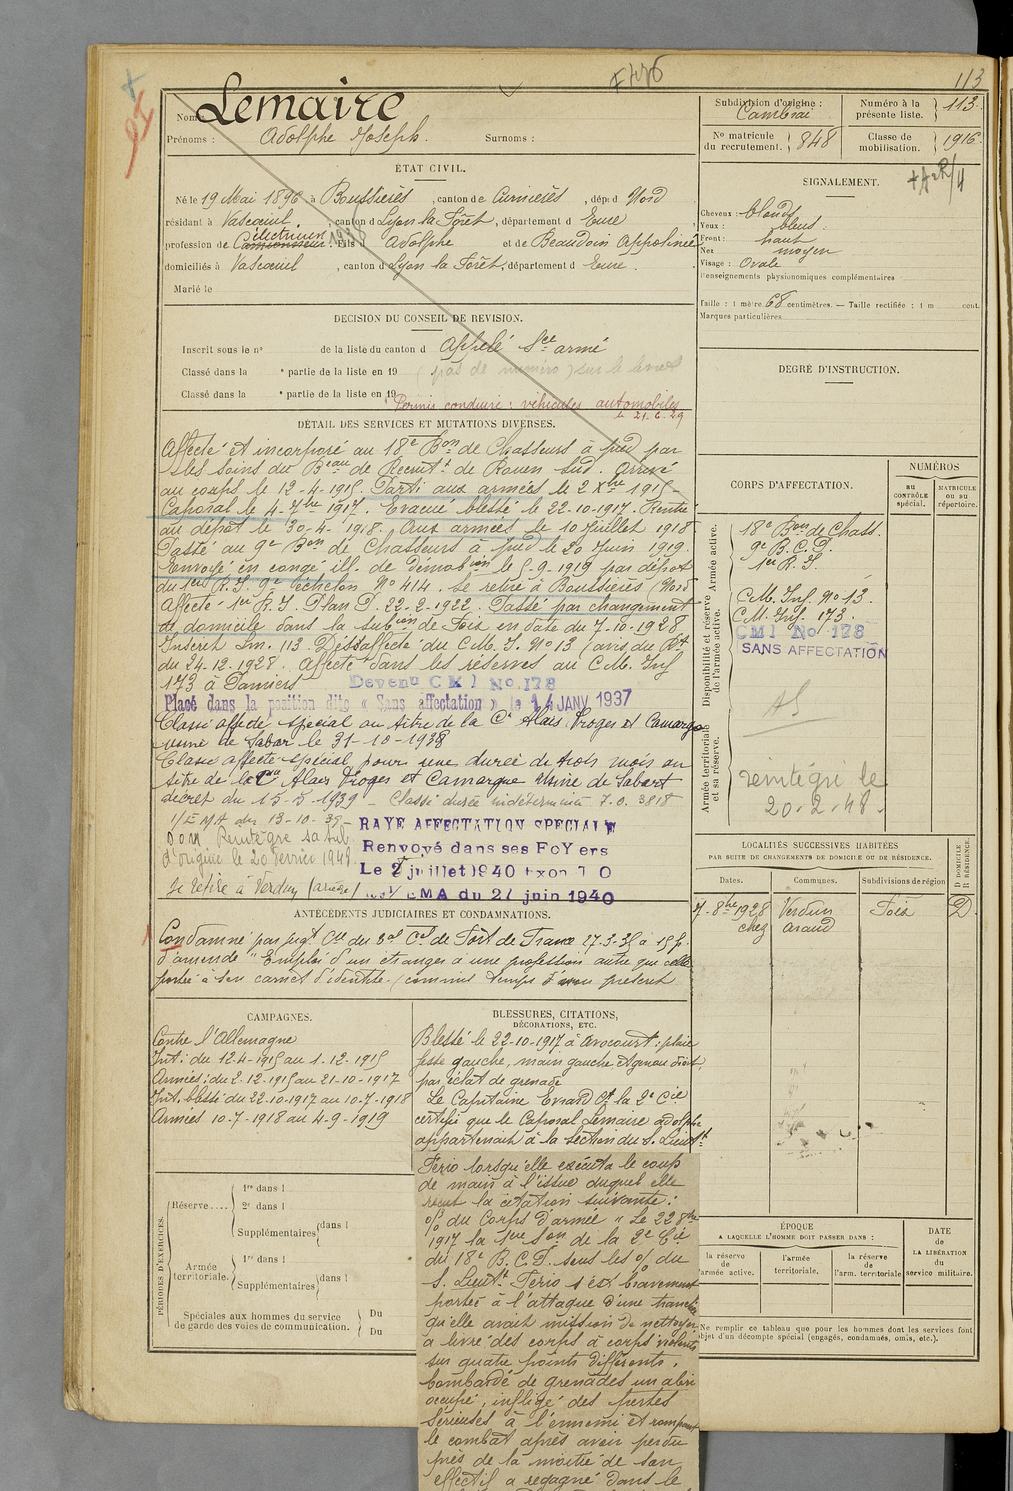 113
Nom
Lemaire
Prénoms : Adolphe Joseph. Surnoms :
ÉTAT CIVIL.
Né le 19 Mai 1896 à Boussières, canton de Carnières, dép d Nord
résidant à Vascoeuil, canton d Lyon la Forêt, département d Eure
électricien
profession de Camionneur. Fils d Adolphe et de Beaudoin Appoline
domiciliés à Vascoeuil, canton d Lyon la Forêt, département d Eure.
Marié le
DECISION DU CONSEIL DE REVISION.
Inscrit sous le n° de la liste du canton d Appelé Sce armé
Classé dans la e partie de la liste en 19 (pas de numéro) sur le livret
Classé dans la e partie de la liste en 19
Permis conduire : véhicules automobiles
le 21.6.29
DÉTAIL DES SERVICES ET MUTATIONS DIVERSES.
Affecté et incorporé au 18e Bon de Chasseurs à pied par
les soins du Beau de Recrutt de Rouen Sud. Arrivé
au corps le 12-4-1915. Parti aux armées le 2 Xbre 1915-
Caporal le 4-7bre 1917. Evacué blessé le 22-10-1917. Rentré
au dépôt le 30-4-1918. Aux armées le 10 Juillet 1918
Passé au 9e Bon de Chasseurs à pied le 20 Juin 1919.
Envoyé en congé ill. de démobon le 5-9-1919 par dépôt
du 1er R.I. 9e échelon No 414. Se retire à Boussières (Nord
Affecté 1er R.I. Plan P. 22-2-1922. Passé par changement
de domicile dans la subon de Foix en date du 7-10-1928
Inscrit Lm. 113 Désaffecté du C.M.I. No 13 (avis du Rt
du 24-12-1928. Affecté dans les réserves au C.M. Inf
173 à Pamiers Devenu CMI No 178
Placé dans la position dite « Sans affectation » le 14 JANV 1937
Classé affecté spécial au titre de la Cie Alais Froges et Camargue
usine de Sabar le 31-10-1938
Classé affecté spécial pour une durée de trois mois au
titre de la Cie Alais Froges et Camargue Usine de Sabart
décret du 15-5-1939 - Classé durée indéterminée 7.0. 3818
1/EMA du 13-10-39-
RAYE AFFECTATION SPECIALE
Renvoyé dans ses FoYers
Le 2 juillet 1940
EMA du 27 juin 1940
Réintègre sa sub
d'origine le 20 février 1948
Se retire à Verdun (Ariège)
ANTÉCÉDENTS JUDICIAIRES ET CONDAMNATIONS.
Condamné par jugt
d'amende " Emploi d'un étranger à une profession autre que celle
portée à son carnet d'identité. (commis temps
CAMPAGNES.
Contre l'Allemagne
Int: du 12-4-1915 au 1-12-1915
Armées: du 2-12-1915 au 21-10-1917
Int. blessé du 22-10-1917 au 10-7-1918
Armées 10-7-1918 au 4-9-1919
BLESSURES, CITATIONS,
DÉCORATIONS, ETC.
Blessé le 22-10-1917 à Avocourt : plaie
fesse gauche, main gauche et genou droit
par éclat de grenade
Le Capitaine Evrard Ct la 2e Cie
certifie que le Caporal Lemaire Adolphe
appartenait à la section du S. Lieutt
Ferio lorsqu'elle exécuta le coup
de main à l'issue duquel elle
reçut la citation suivante :
% du Corps d'armée " Le 22 8bre
1917 la 1ère Son de la 2e Cie
du 18e B.C.P. sous les % du
S. Lieut. Ferio s'est bravement
portée à l'attaque d'une tranchée
qu'elle avait mission de nettoyer
a livré des corps à corps violents
sur quatre points différents,
bombardé de grenades un abri
occupé, infligé des pertes
sérieuses à l'ennemi et rompant
le combat après avoir perdu
près de la moitié de son
effectif a regagné dans le
PÉRIODES D'EXERCICES.
Réserve....
1re dans l
2e dans l
Supplémentaires dans l
Armée territoriale.
1re dans l
Supplémentaires dans l
Spéciales aux hommes du service
de garde des voies de communication.
Du
Du
Subdivision d'origine :
Cambrai
Numéro à la présente liste. 113.
No matricule du recrutement. 848
Classe de mobilisation. 1916.
SIGNALEMENT.
Cheveux : blonds
Yeux : bleus.
Front : haut
Nez moyen
Visage : Ovale
Renseignements physionomiques complémentaires
Taille : 1 mètre 68 centimètres. — Taille rectifiée : 1 m cent.
Marques particulières
DEGRÉ D'INSTRUCTION.
CORPS D'AFFECTATION.
NUMÉROS
au CONTRÔLE spécial.
MATRICULE ou au répertoire.
Armée active.
18e Bon de Chass.
9e B.C.P.
1er R.I.
Disponibilité et réserve de l'armée active.
C.M. Inf. No 13.
C.M. Inf. 173
CMI No 178
SANS AFFECTATION
AS
Armée territoriale et sa réserve.
réintégré le
20-2-48.
LOCALITÉS SUCCESSIVES HABITÉES
PAR SUITE DE CHANGEMENTS DE DOMICILE OU DE RÉSIDENCE.
Dates. Communes. Subdivisions de région
D DOMICILE
R RÉSIDENCE.
7-8bre 1928 Verdun Foix D.
chez Araud
ÉPOQUE
A LAQUELLE L'HOMME DOIT PASSER DANS :
la réserve de l'armée active.
l'armée territoriale.
la réserve de l'arm. territoriale
DATE de LA LIBÉRATION du service militaire.
Ne remplir ce tableau que pour les hommes dont les services font
objet d'un décompte spécial (engagés, condamnés, omis, etc.).